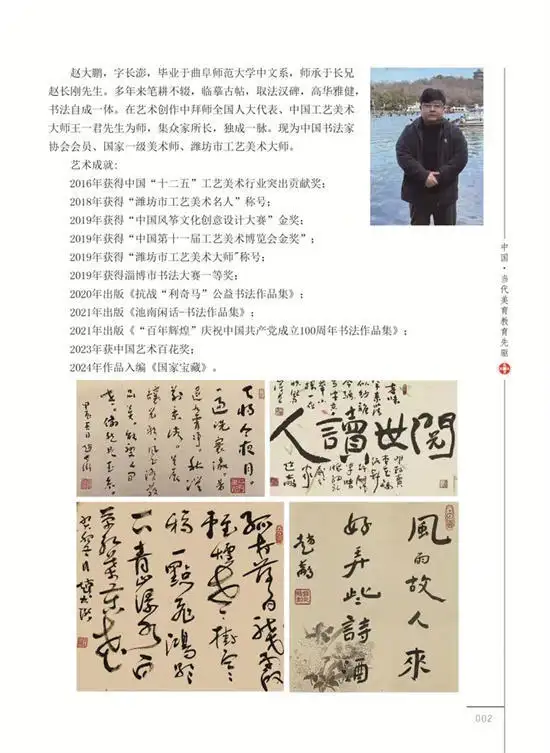 赵大鹏，字长澎，毕业于曲阜师范大学中文系，师承于长兄
赵长刚先生。多年来笔耕不辍，临摹古帖，取法汉碑，高华雅健，
书法自成一体。在艺术创作中拜师全国人大代表、中国工艺美术
大师王一君先生为师，集众家所长，独成一脉。现为中国书法家
协会会员、国家一级美术师、潍坊市工艺美术大师。
艺术成就：
2016年获得中国“十二五”工艺美术行业突出贡献奖；
2018年获得“潍坊市工艺美术名人”称号；
2019年获得“中国风筝文化创意设计大赛”金奖；
2019年获得“中国第十一届工艺美术博览会金奖”；
2019年获得“潍坊市工艺美术大师"称号；
2019年获得淄博市书法大赛一等奖；
2020年出版《抗战“利奇马”公益书法作品集》；
2021年出版《池南闲话-书法作品集》；
2021年出版《“百年辉煌”庆祝中国共产党成立100周年书法作品集》；
2023年获中国艺术百花奖；
2024年作品入编《国家宝藏》。
中国·当代美育教育先驱
閱世讀人
孤村落日殘霞
輕煙老樹寒
鴉一點飛鴻影
下青山綠水白
草紅葉黄花
風雨故人來
好弄些詩酒
002